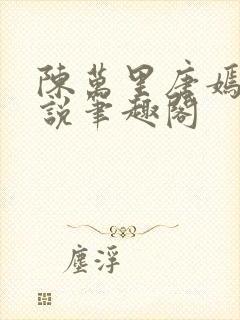 陳萬里唐嫣
說筆趣閣
塵浮